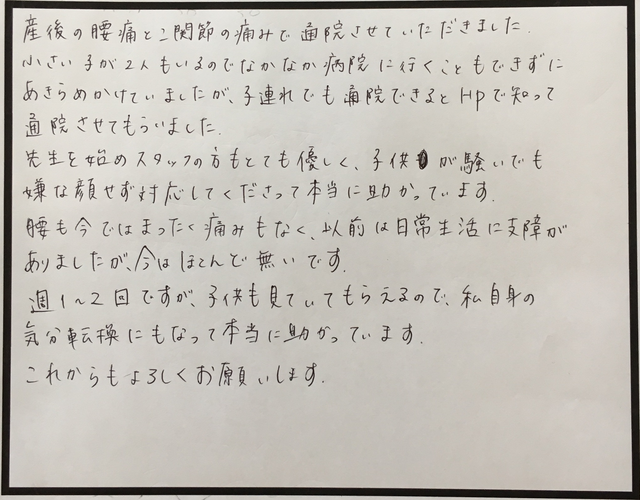 産後の腰痛と二関節の痛みで通院させていただきました.
小さい子が2人もいるのでなかなか病院に行くこともできずに
あきらめかけていましたが、子連れでも通院できるとHPで知って
通院させてもらいました.
先生を始めスタッフの方もとても優しく、子供が騒いでも
嫌な顔せず対応してくださって本当に助かっています.
腰も今ではまったく痛みもなく、以前は日常生活に支障が
ありましたが、今はほとんど無いです.
週1〜2回ですが、子供も見ていてもらえるので、私自身の
気分転換にもなって本当に助かっています.
これからもよろしくお願いします.